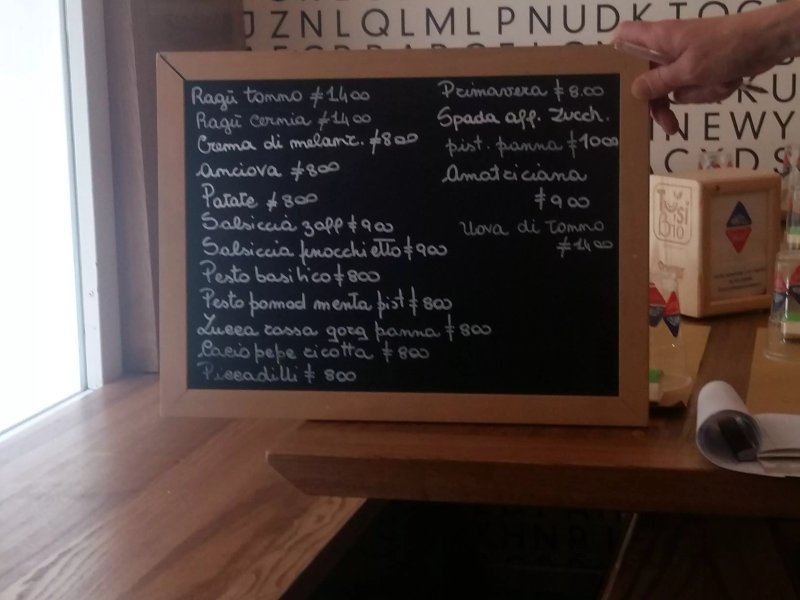 JZNLQLMLPNUDKTOCE
Ragū tonno € 14 00
Ragū cernia € 14 00
Crema di melanz. € 8 00
Anciova € 8 00
Patate € 8 00
Salsiccia zaff € 9 00
Salsiccia finocchietto € 9 00
Pesto basilico € 8 00
Pesto pomod menta pist € 8 00
Zucca rossa gorg panna € 8 00
Cacio pepe ricotta € 8 00
Piccadilli € 8 00
Primavera € 8.00
Spada aff. Zucch.
pist. panna € 10 00
Amatriciana
€ 9 00
Uova di tonno
€ 14 00
KU
INEWY
CXDS
BIO